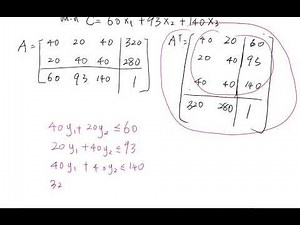 Min C = 60x₁ + 93x₂ + 140x₃
A = [ 40 20 40 | 320
20 40 40 | 280
60 93 140 | 1 ]
Aᵀ = [ 40 20 | 60
20 40 | 93
40 40 | 140
320 280 | 1 ]
40y₁ + 20y₂ ≤ 60
20y₁ + 40y₂ ≤ 93
40y₁ + 40y₂ ≤ 140
32